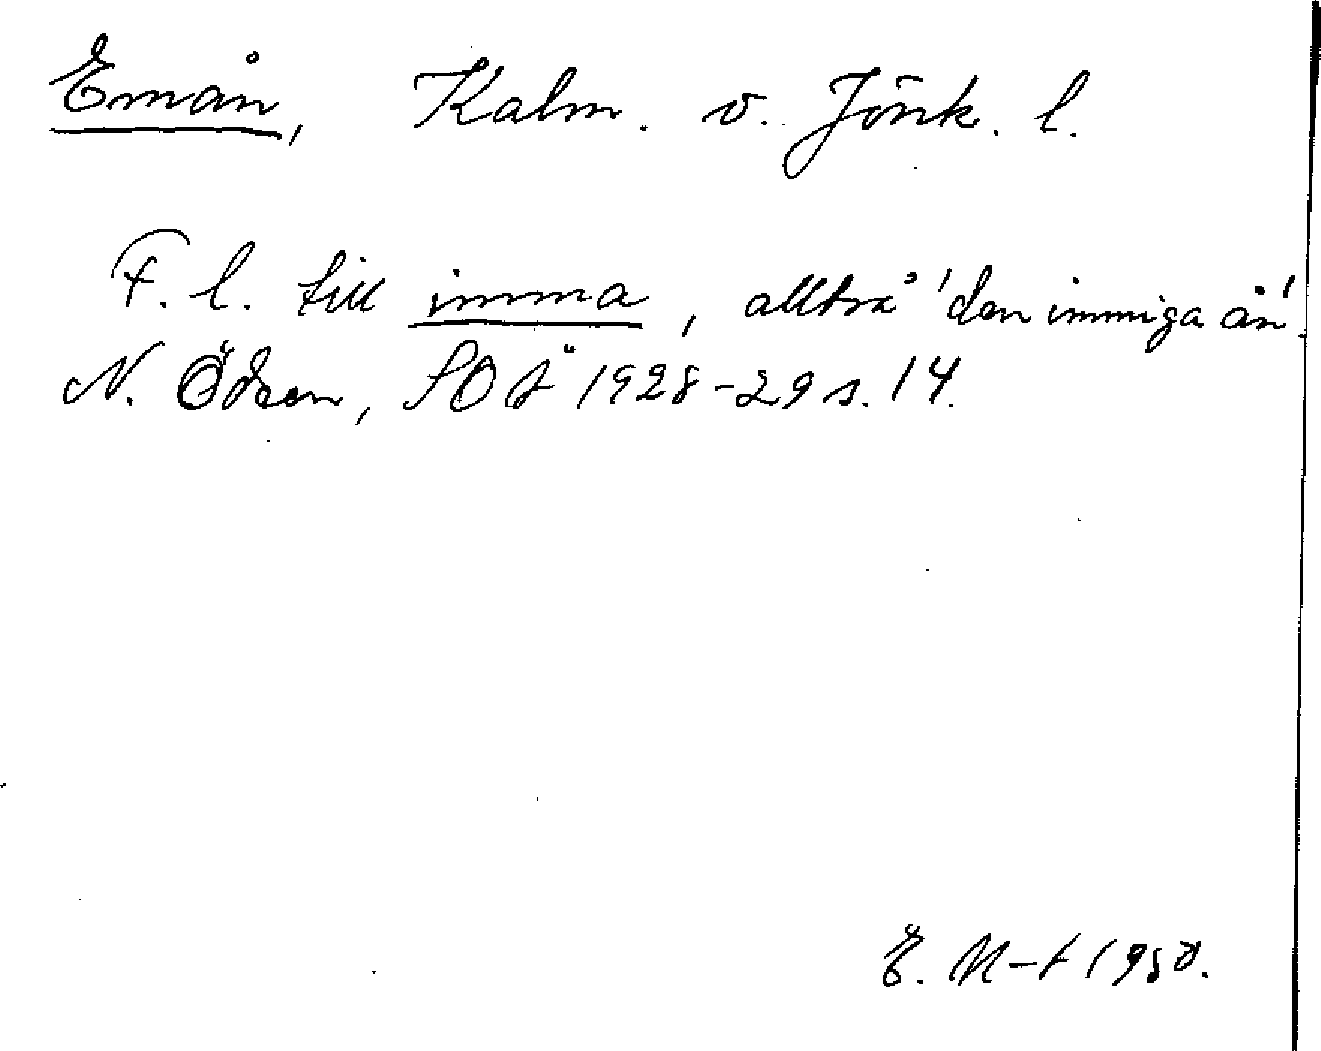 Emån, Kalm. o. Jönk. l.
F. l. till imma, alltså 'den immiga ån'.
N. Ödeen, SOÅ 1928-29 s. 14.
E. M-t 1950.